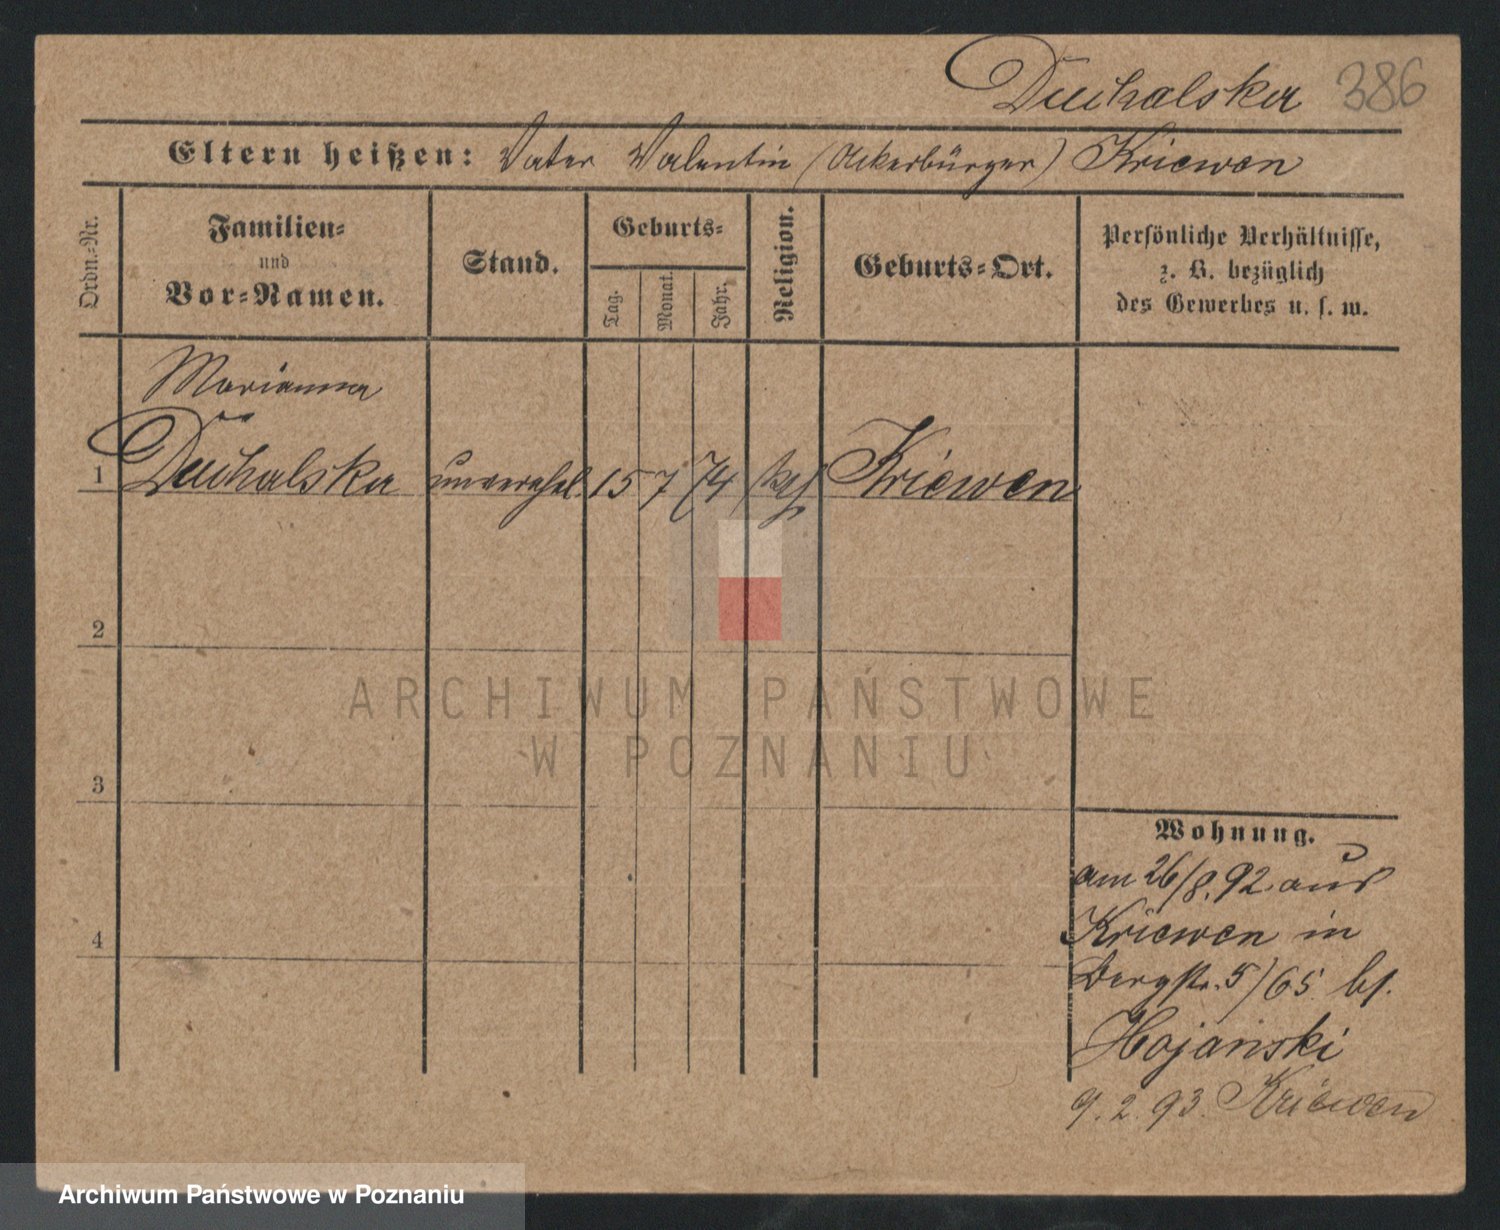 Duchalska 386
Eltern heißen: Vater Valentin (Ackerbürger) Kriewen
Ordn.-Nr.
Familien-
und
Vor-Namen.
Stand.
Geburts-
Tag.
Monat.
Jahr.
Religion.
Geburts-Ort.
Persönliche Verhältnisse,
z. B. bezüglich
des Gewerbes u. s. w.
Marianna
1 Duchalska unverehel. 15 7 74 kath Kriewen
2
3
4
Wohnung.
am 26/8.92 aus
Kriewen in
Bergstr. 5/65 bf.
Hojanski
9.2.93. Kriewen
ARCHIWUM PAŃSTWOWE
W POZNANIU
Archiwum Państwowe w Poznaniu